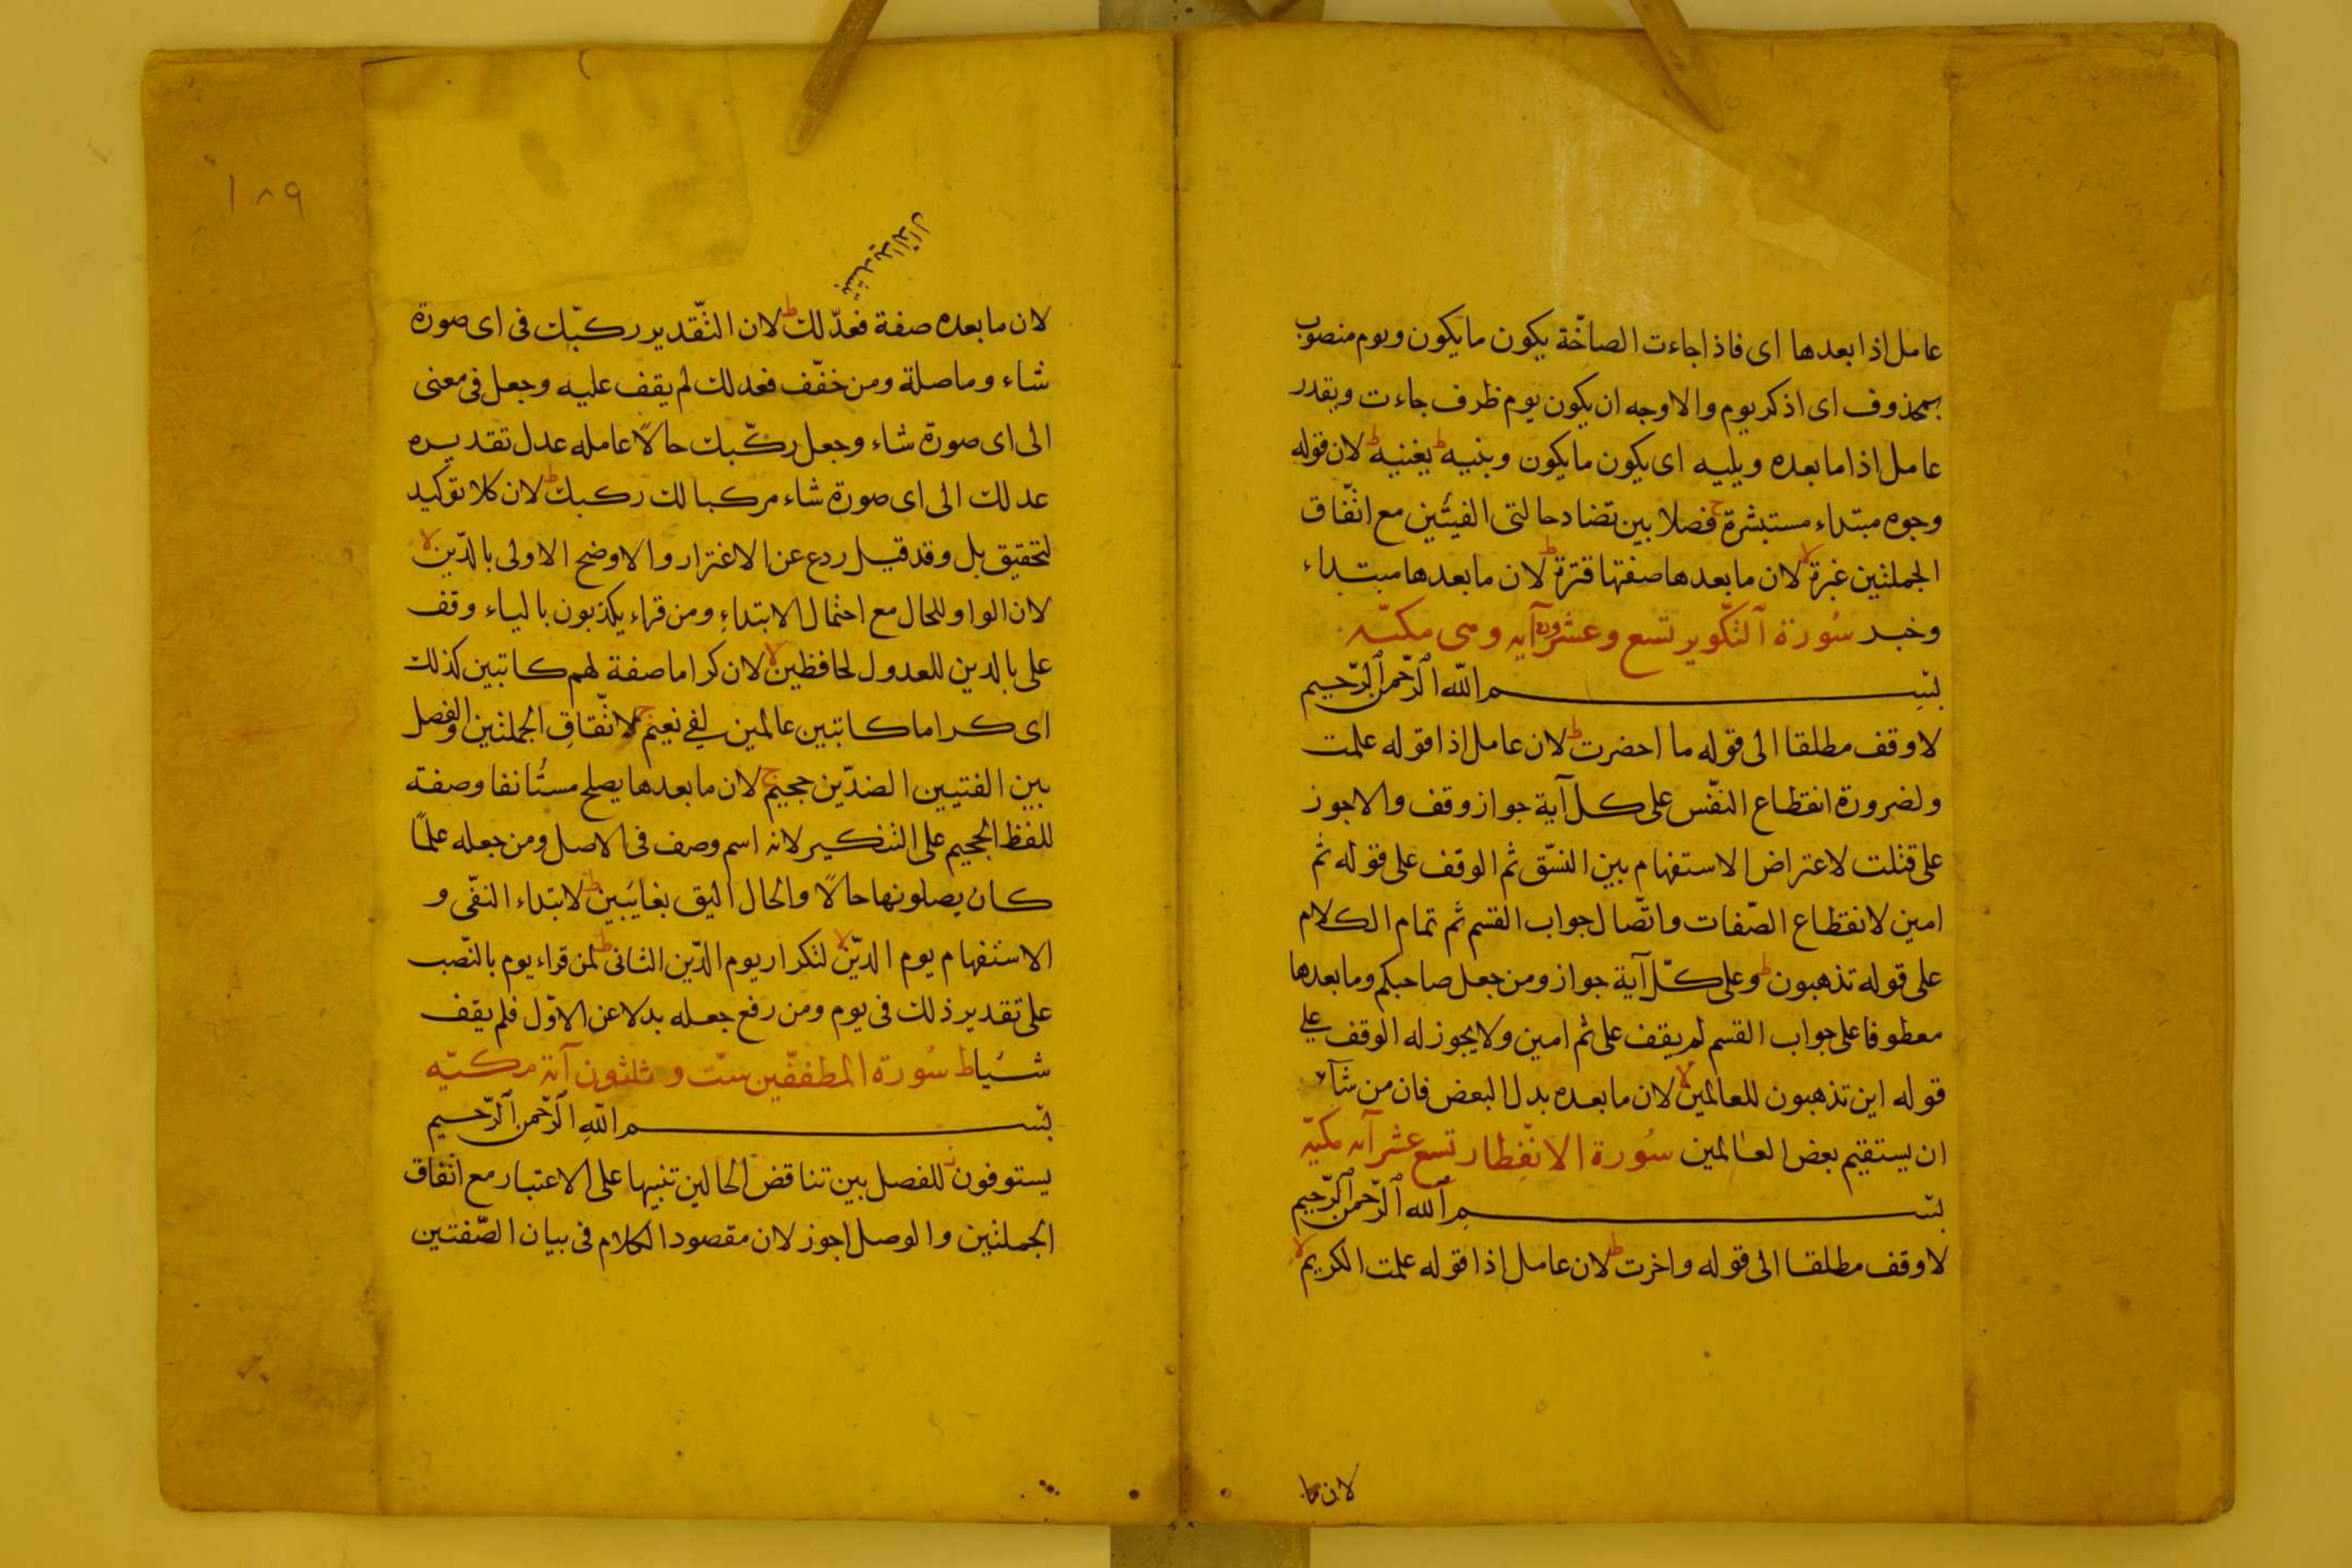 عامل اذا بعدها اى فاذا جاءت الصاخّة يكون ما يكون ويوم منصوب
بمحذوف اى اذكر يوم والاوجه ان يكون يوم ظرف جاءت ويقدر
عامل اذا ما بعده ويليه اى يكون ما يكون وبنيه ط يغنيه ط لان قوله
وجوه مبتداء مستبشرة ج فصلا بين تضاد حالتى الفيئين مع اتّفاق
الجملتين غبرة لا لان ما بعدها صفتها قترة ط لان ما بعدها مبتداء
وخبر سُورَة التّكوير تسع وعشرون آيه وهى مكيّه
بسم الله الرّحمن الرّحيم
لا وقف مطلقا الى قوله ما احضرت ط لان عامل اذا قوله علمت
ولضرورة انقطاع النّفس على كل آية جواز وقف والاجوز
على قتلت لاعتراض الاستفهام بين النسّق ثم الوقف على قوله ثم
امين لانقطاع الصّفات واتّصال جواب القسم ثم تمام الكلام
على قوله تذهبون ط وعلى كلّ آية جواز ومن جعل صاحبكم وما بعدها
معطوفا على جواب القسم لم يقف على ثم امين ولا يجوز له الوقف على
قوله اين تذهبون للعالمين لا لان ما بعده بدل البعض فان من شآء
ان يستقيم بعض العالمين سُورة الانفطار تسع عشر آيه مكيّه
بسم الله الرّحمن الرّحيم
لا وقف مطلقا الى قوله واخرت ط لان عامل اذا قوله علمت الكريم لا
لان ما
١٨٩
بتشديد الدال
لان ما بعده صفة فعدّلك ط لان التّقدير ركبّك فى اى صورة
شاء وما صلة ومن خفّف فعدلك لم يقف عليه وجعل فى معنى
الى اى صورة شاء وجعل ركّبك حالًا عامله عدل تقديره
عدلك الى اى صورة شاء مركبا لك ركبك ط لان كلا توكيد
لتحقيق بل وقد قيل ردع عن الاغترار والاوضح الاولى بالدّين لا
لان الواو للحال مع احتمال الابتداء ومن قراء يكذبون بالياء وقف
على بالدين للعدول لحافظين لا لان كراما صفة لهم كاتبين كذلك
اى كراما كاتبين عالمين لفى نعيم ج لاتّفاق الجملتين والفصل
بين الفتيين الضدّين جحيم ج لان ما بعدها يصلح مستُانفا وصفة
للفظ الجحيم على التنكير لانه اسم وصف فى الاصل ومن جعله علمًا
كان يصلونها حالًا والحال اليق بغايبين ط لابتداء النفّى و
الاستفهام يوم الدّين لا لتكرار يوم الدّين الثانى ط لمن قراء يوم بالنّصب
على تقدير ذلك فى يوم ومن رفع جعله بدلا عن الاوّل فلم يقف
شيُا ط سُورة المطففّين ستّ وثلثون آية مكيّه
بسم الله الرّحمن الرّحيم
يستوفون ز للفصل بين تناقض الحالين تنبيها على الاعتبار مع اتفاق
الجملتين والوصل اجوز لان مقصود الكلام فى بيان الصّفتين